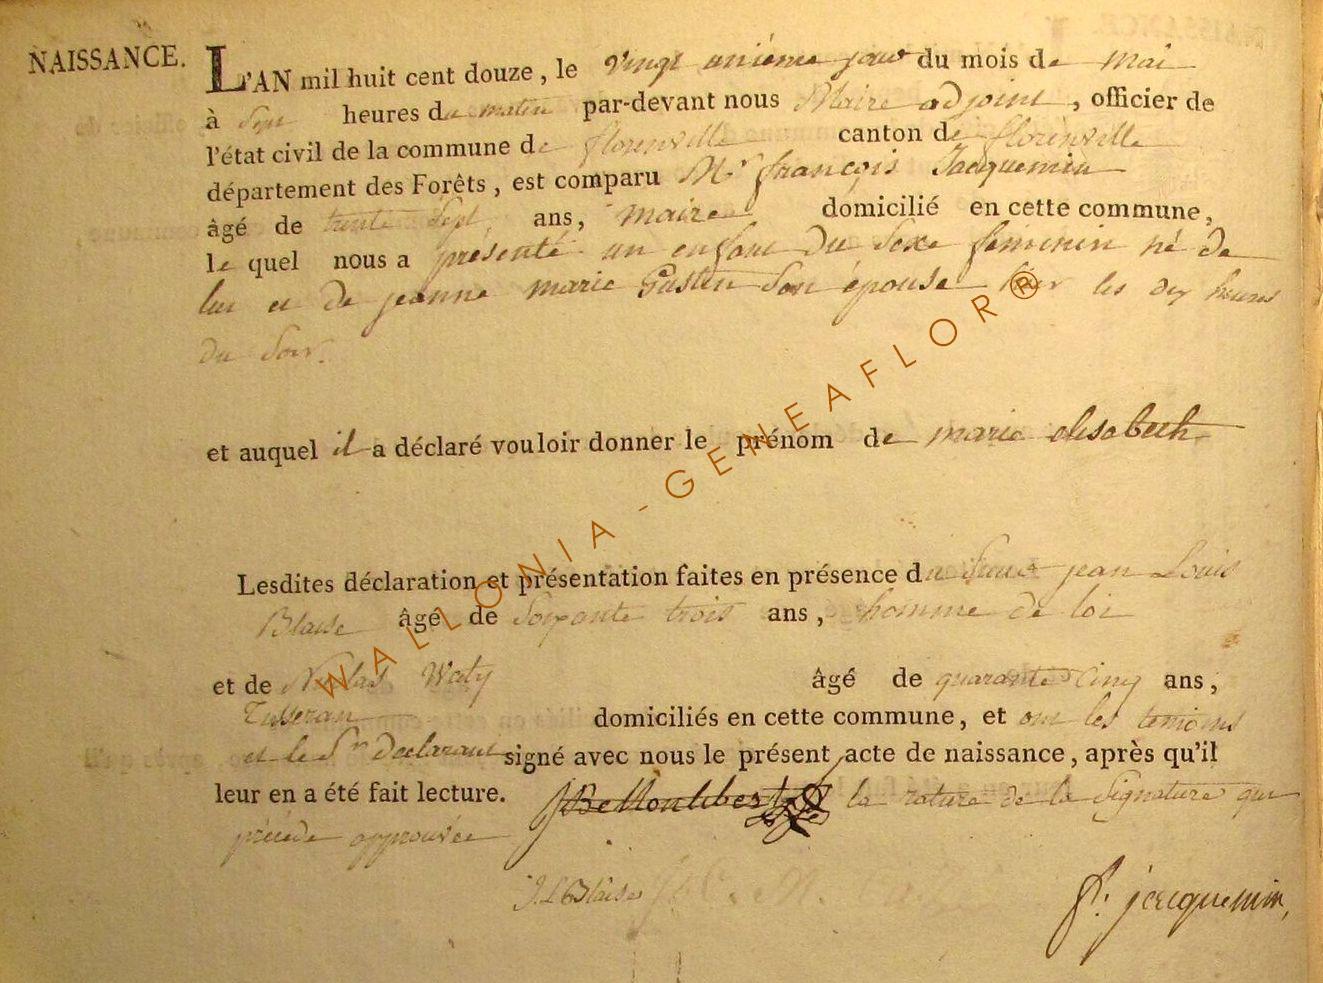 NAISSANCE. L'AN mil huit cent douze, le vingt unième jour du mois de mai
à sept heures du matin par-devant nous Maire adjoint, officier de
l'état civil de la commune de florenville canton de florenville
département des Forêts, est comparu Mr françois Jacquemin
âgé de trente sept ans, maire domicilié en cette commune,
le quel nous a présenté un enfant du sexe féminin né de
lui et de jeanne marie son épouse hier les dix heures
du soir.
et auquel il a déclaré vouloir donner le prénom de marie elisabeth
Lesdites déclaration et présentation faites en présence du Sieur jean Louis
Blaise âgé de Soixante trois ans, homme de loi
et de Nicolas Waty âgé de quarante cinq ans,
Tisseran domiciliés en cette commune, et ont les temoins
et le Sr declarant signé avec nous le présent acte de naissance, après qu'il
leur en a été fait lecture. la rature de la Signature qui
précède approuvée
J. L. Blaise
f. jacquemin,
WALLONIA - GENEAFLOR ®